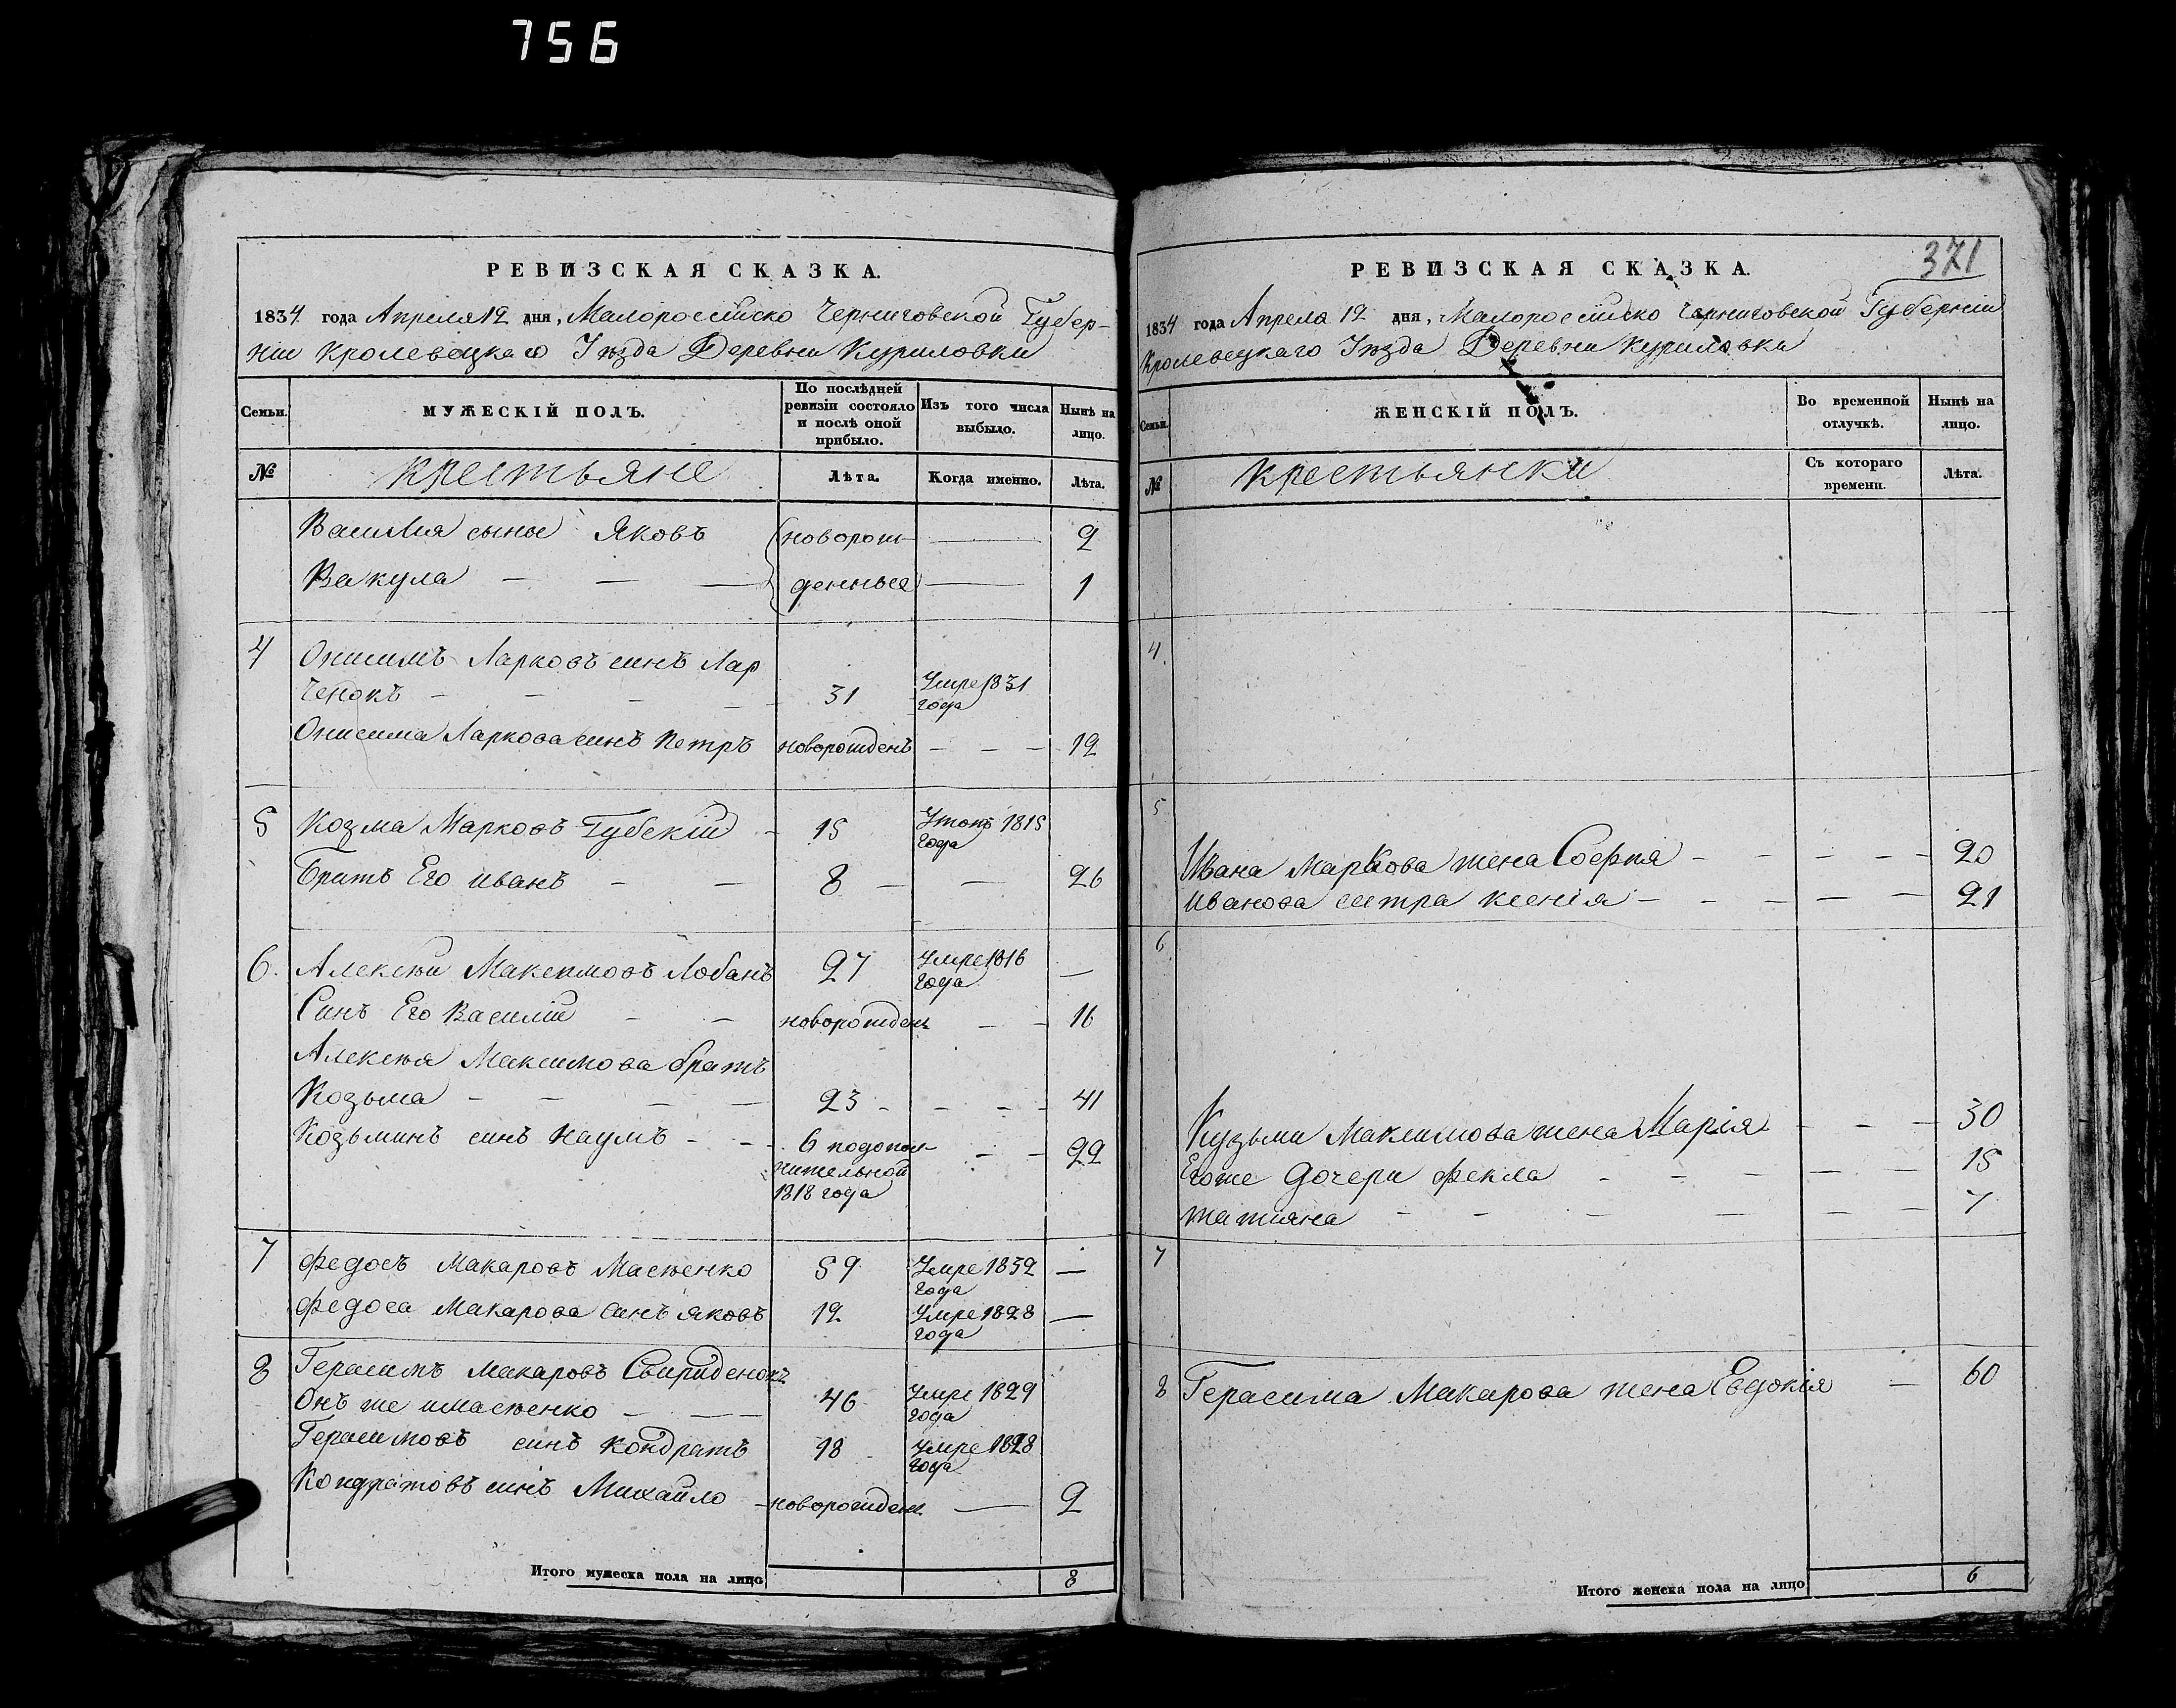 756
РЕВИЗСКАЯ СКАЗКА.
1834 года Апреля 12 дня, Малороссійско Черниговской Губер-
ніи Кролевецкаго Уѣзда Деревни Куриловки
Семьи. МУЖЕСКІЙ ПОЛЪ. По послѣдней ревизіи состояло и послѣ оной прибыло. Изъ того числа выбыло. Нынѣ на лицо.
№ Крестьяне Лѣта. Когда именно. Лѣта.
Василия сыны Яковъ новорож- 2
Вакула денные 1
4 Онисимъ Ларковъ синъ Лар
ченокъ 31 Умре 1831 года
Онисима Ларкова синъ Петръ новорожденъ 12
5 Козма Марковъ Губскій 15 1815 года
Братъ Его иванъ 8 26
6. Алексѣй Максимовъ Лобанъ 27 Умре 1816 года —
Синъ Его Василій новорожден. 16
Алексѣя Максимова братъ
Козьма 23 41
Козьминъ синъ Наумъ 6 подопол-
нительной
1818 года 22
7 Федосъ Макаровъ Масѣенко 59 Умре 1832 года —
Федоса Макарова Синъ яковъ 12 Умре 1828 года —
8 Герасимъ Макаровъ Свириденокъ
Онъ же имасѣенко 46 Умре 1829 года
Герасимовъ синъ Кондратъ 18 Умре 1828 года
Кондратовъ синъ Михайло новорожден. 2
Итого мужеска пола на лицо 8
371
РЕВИЗСКАЯ СКАЗКА.
1834 года Апреля 12 дня, Малороссійско Черниговской Губерніи
Кролевецкаго Уѣзда Деревни Куриловки
Семьи. ЖЕНСКІЙ ПОЛЪ. Во временной отлучкѣ. Нынѣ на лицо.
№ Крестьянки Съ котораго времени. Лѣта.
4.
5
Ивана Маркова жена София 20
Иванова сестра ксенія 21
6
Кузьми Максимова жена Марія 30
Егоже Дочери Фекла 15
татияна 7
7
8 Герасима Макарова жена Евдокія 60
Итого женска пола на лицо 6